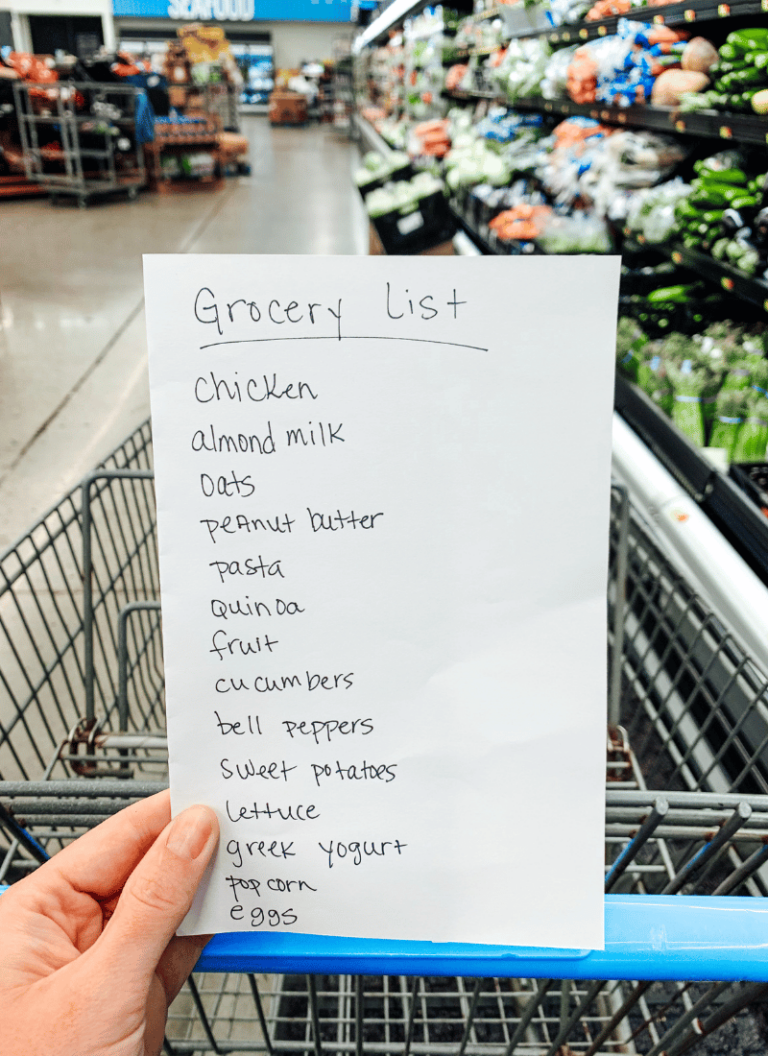 SEAFOOD
Grocery List
chicken
almond milk
oats
peanut butter
pasta
quinoa
fruit
cucumbers
bell peppers
sweet potatoes
lettuce
greek yogurt
popcorn
eggs